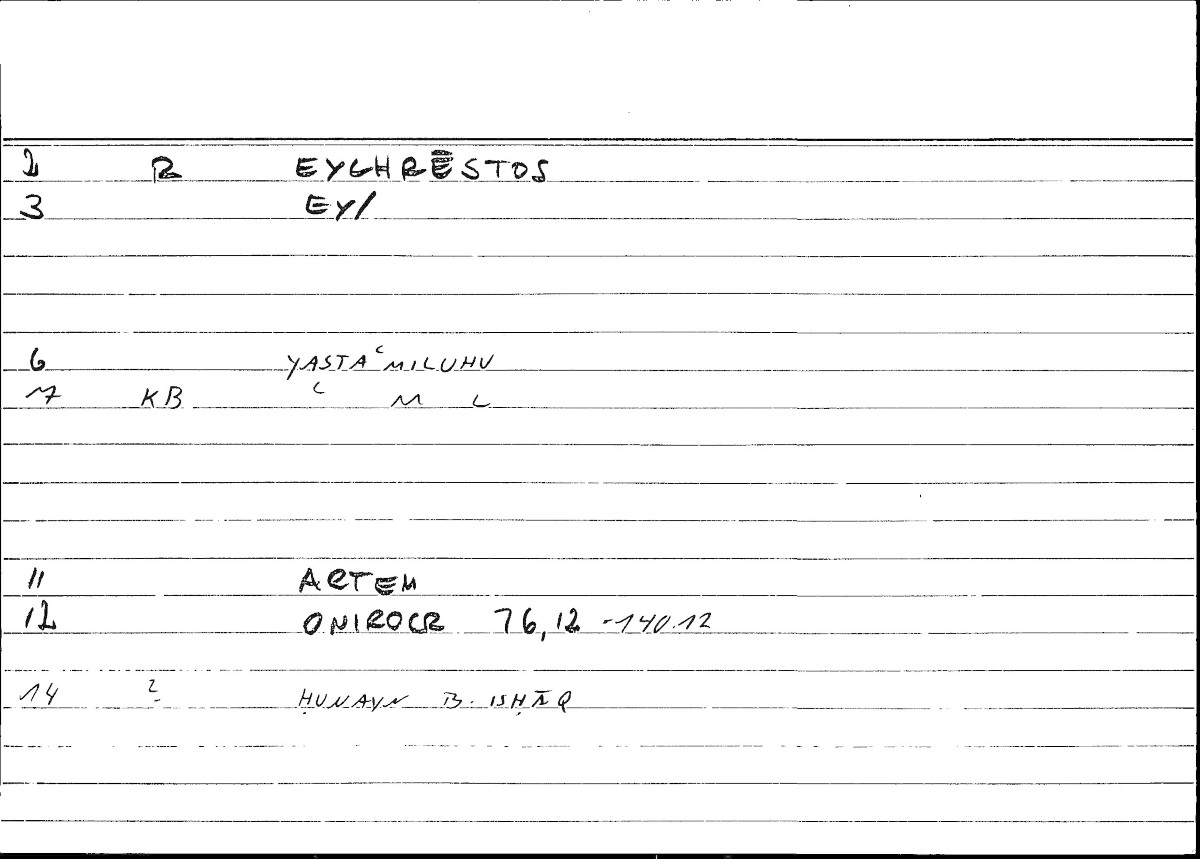 2 R EYCHRĒSTOS
3 EY/
6 YASTAʿMILUHU
7 KB ʿ M L
11 ARTEM
12 ONIROCR 76,12 -140.12
14 2 ḤUNAYN B. ISḤĀQ